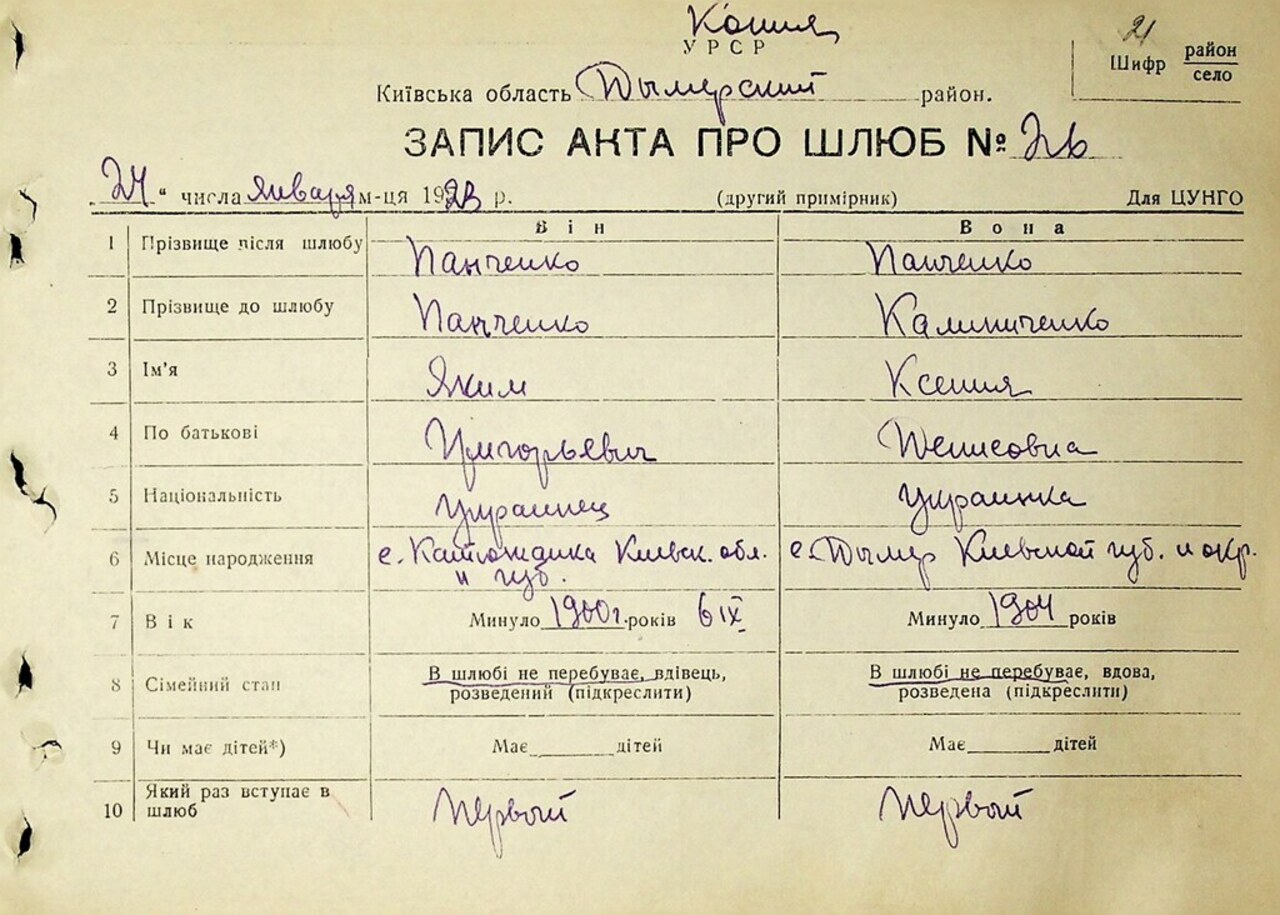 Копия
УРСР
21
Шифр район
село
Київська область Дымерский район.
ЗАПИС АКТА ПРО ШЛЮБ № 26
„24“ числа января м-ця 1923 р. (другий примірник) Для ЦУНГО
Він Вона
1 Прізвище після шлюбу Панченко Панченко
2 Прізвище до шлюбу Панченко Калиниченко
3 Ім'я Яким Ксения
4 По батькові Григорьевич Денисовна
5 Національність Украинец Украинка
6 Місце народження с. Катюжанка Киевск. обл. с. Дымер Киевской губ. и окр.
и губ.
7 Вік Минуло 1900 г. років 6 IX Минуло 1904 років
8 Сімейний стан В шлюбі не перебуває, вдівець, В шлюбі не перебуває, вдова,
розведений (підкреслити) розведена (підкреслити)
9 Чи має дітей*) Має дітей Має дітей
10 Який раз вступає в шлюб первый первый